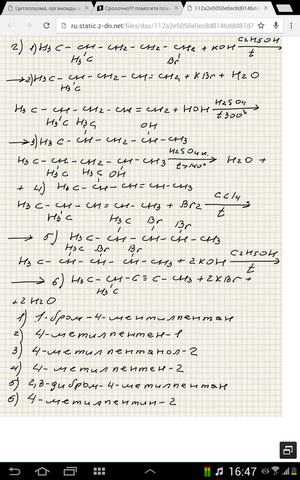 Цитоплазма, органоиды
Срооочно!!! помогите поже
ru.static.z-dn.net/files/dac/112a2e5050e0ec8d014bddd87d7
2) 1) H3C – CH – CH2 – CH2 – CH2 + KOH C2H5OH t
H3C Br
→ 2) H3C – CH – CH2 – CH = CH2 + KBr + H2O
H3C
H3C – CH – CH2 – CH = CH2 + HOH H2SO4 t300°
H3C H3C OH
→ 3) H3C – CH – CH2 – CH – CH3
H3C – CH – CH2 – CH – CH3 H2SO4 к. t>140° H2O +
H3C H3C OH
+ 4) H3C – CH – CH = CH – CH3
H3C – CH – CH = CH – CH3 + Br2 CCl4 t
H3C H3C Br Br
→ 5) H3C – CH – CH – CH – CH3
H3C Br Br
H3C – CH – CH – CH – CH3 + 2KOH C2H5OH t
→ 6) H3C – CH – C ≡ C – CH3 + 2KBr +
H3C
+ 2H2O
1) 1-бром-4-метилпентан
2) 4-метилпентен-1
3) 4-метилпентанол-2
4) 4-метилпентен-2
5) 2,3-дибром-4-метилпентан
6) 4-метилпентин-2
16:47